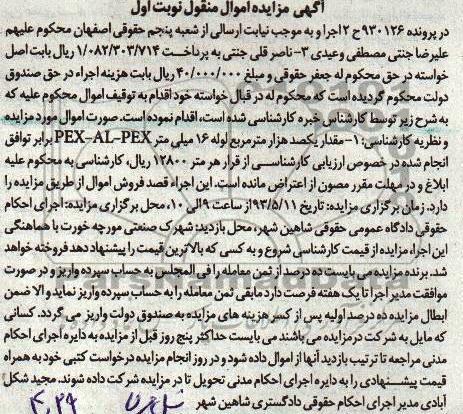 آگهی مزایده اموال منقول نوبت اول
در پرونده ۹۳۰۱۲۶ح ۲ اجرا و به موجب نیابت ارسالی از شعبه پنجم حقوقی اصفهان محکوم علیهم
علیرضا جنتی مصطفی وعیدی ۳- ناصر قلی جنتی به پرداخت ۱/۰۸۲/۳۰۳/۷۱۴ ریال بابت اصل
خواسته در حق محکوم له جعفر حقوقی و مبلغ ۴۰/۰۰۰/۰۰۰ ریال بابت هزینه اجراء در حق صندوق
دولت محکوم گردیده است که محکوم له در قبال خواسته خود اقدام به توقیف اموال محکوم علیه که
به شرح زیر توسط کارشناس خبره کارشناسی شده است، اقدام نموده است. صورت اموال مورد مزایده
و نظریه کارشناسی: ۱- مقدار یکصد هزار مترمربع لوله ۱۶ میلی متر PEX-AL-PEX برابر توافق
انجام شده در خصوص ارزیابی کارشناسی از قرار هر متر ۱۲۸۰۰ ریال، کارشناسی به محکوم علیه
ابلاغ و در مهلت مقرر مصون از اعتراض مانده است. این اجراء قصد فروش اموال از طریق مزایده را
دارد. زمان برگزاری مزایده: تاریخ ۹۳/۵/۱۱ از ساعت ۹ الی ۱۰، محل برگزاری مزایده: اجرای احکام
حقوقی دادگاه عمومی حقوقی شاهین شهر، محل بازدید: شهرک صنعتی مورچه خورت با هماهنگی
این اجراء مزایده از قیمت کارشناسی شروع و به کسی که بالاترین قیمت را پیشنهاد دهد فروخته خواهد
شد. برنده مزایده می بایست ده درصد از ثمن معامله را فی المجلس به حساب سپرده واریز و در صورت
موافقت مدیر اجرا تا یک هفته فرصت دارد مابقی ثمن معامله را به حساب سپرده واریز نماید والا ضمن
ابطال مزایده ده درصد اولیه پس از کسر هزینه های مزایده به صندوق دولت واریز می گردد. کسانی
که مایل به شرکت در مزایده می باشند می بایست حداکثر پنج روز قبل از مزایده به دایره اجرای احکام
مدنی مراجعه تا ترتیب بازدید آنها از اموال داده شود و در روز انجام مزایده درخواست کتبی خود به همراه
قیمت پیشنهادی را به دایره اجرای احکام مدنی تحویل تا در مزایده شرکت داده شوند. مجید شکل
آبادی مدیر اجرای احکام حقوقی دادگستری شاهین شهر
۴،۲۹